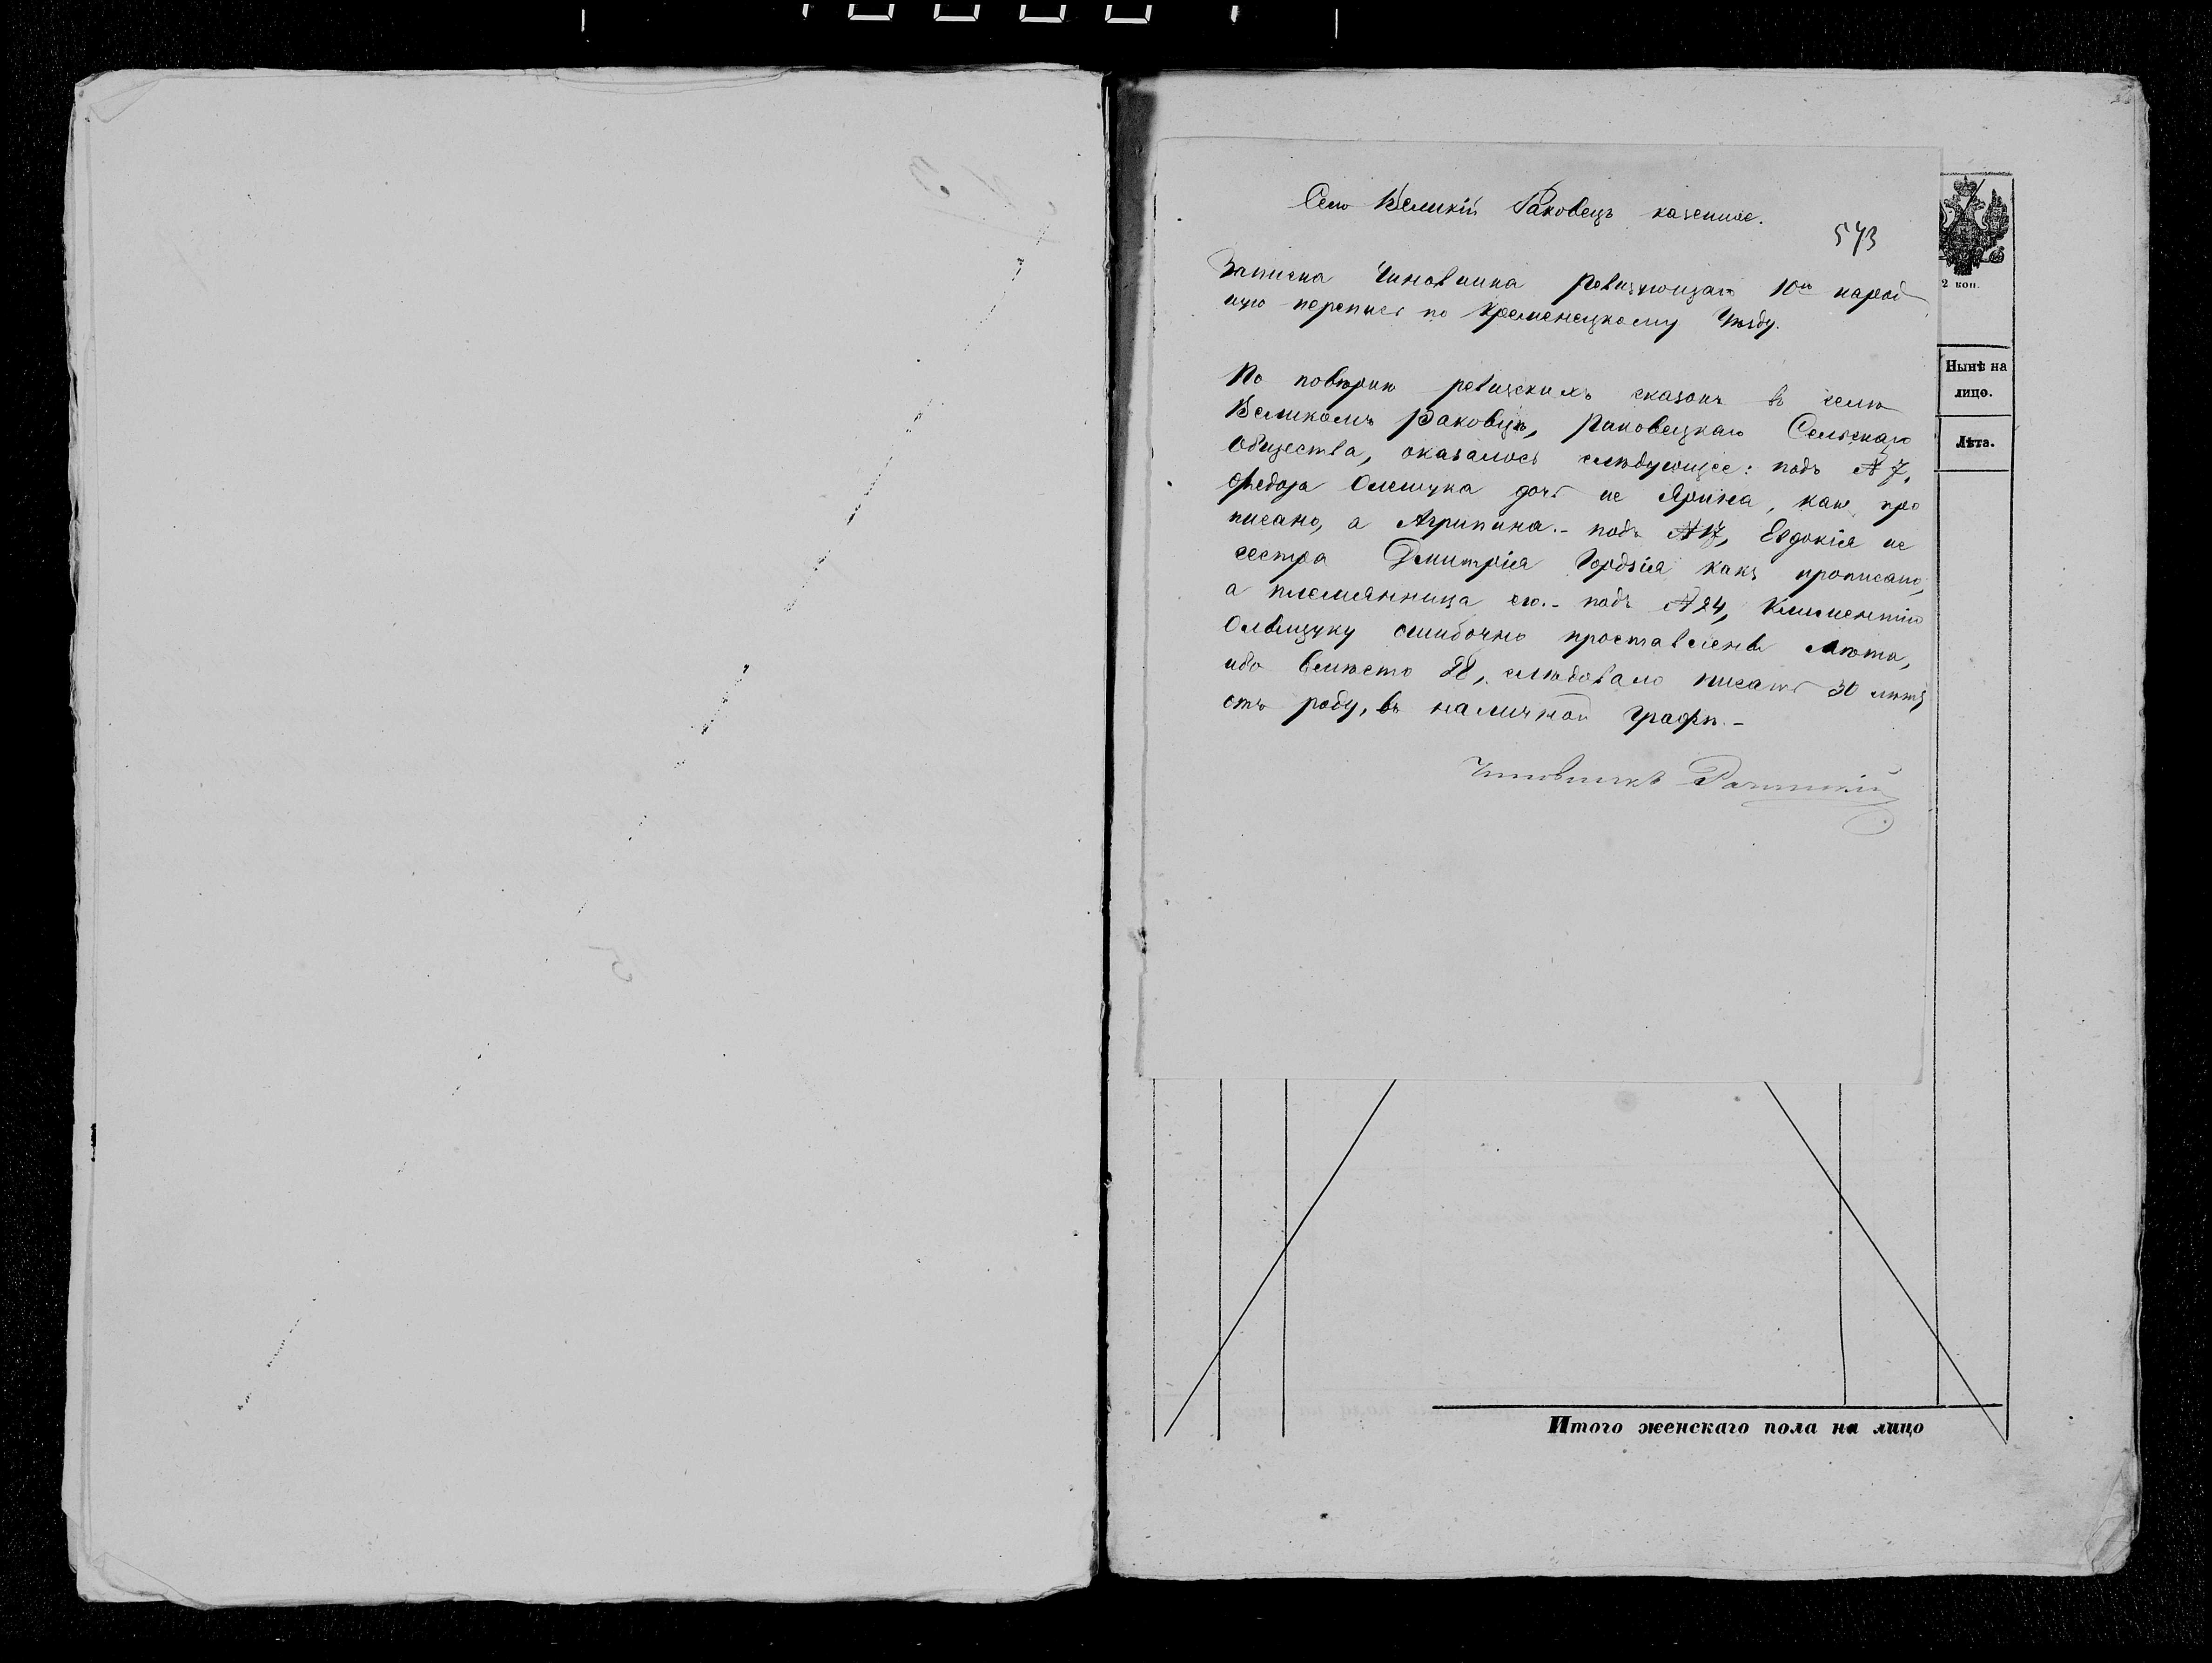 Село Великій Раковецъ казенное.
573
Записка Чиновника ревизующаго 10ю народ
ную перепись по Кременецкому Уѣзду.
2 коп.
Нынѣ на
лицо.
Лѣта.
По повѣркѣ ревизскихъ сказокъ въ селѣ
Великомъ Раковцѣ, Раковецкаго Сельскаго
Общества, оказалось слѣдующее: подъ № 7,
Федора Олещука дочь не Ярина, какъ про
писано, а Агрипина.- подъ № 17, Евдокія не
сестра Дмитрія Гордзія какъ прописано,
а племянница его.- подъ № 24, Климентію
ошибочно проставлены лѣта,
ибо вмѣсто 28, слѣдовало писать 30 лѣтъ
отъ роду, въ наличной графѣ.-
Чиновникъ
Итого женскаго пола на лицо